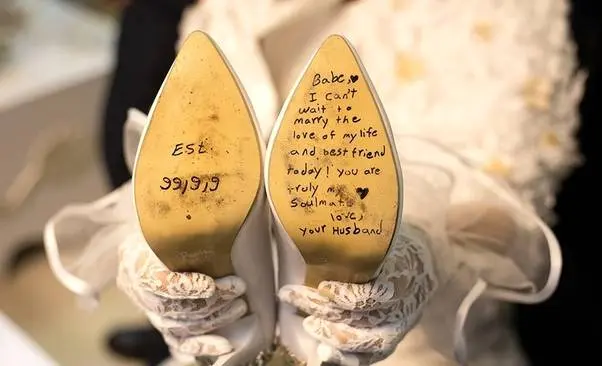 EST.
99,9,9
Babe,♥
I can't
wait to
marry the
love of my life
and best friend
today! you are
truly m
Soulmat
love,
your Husband